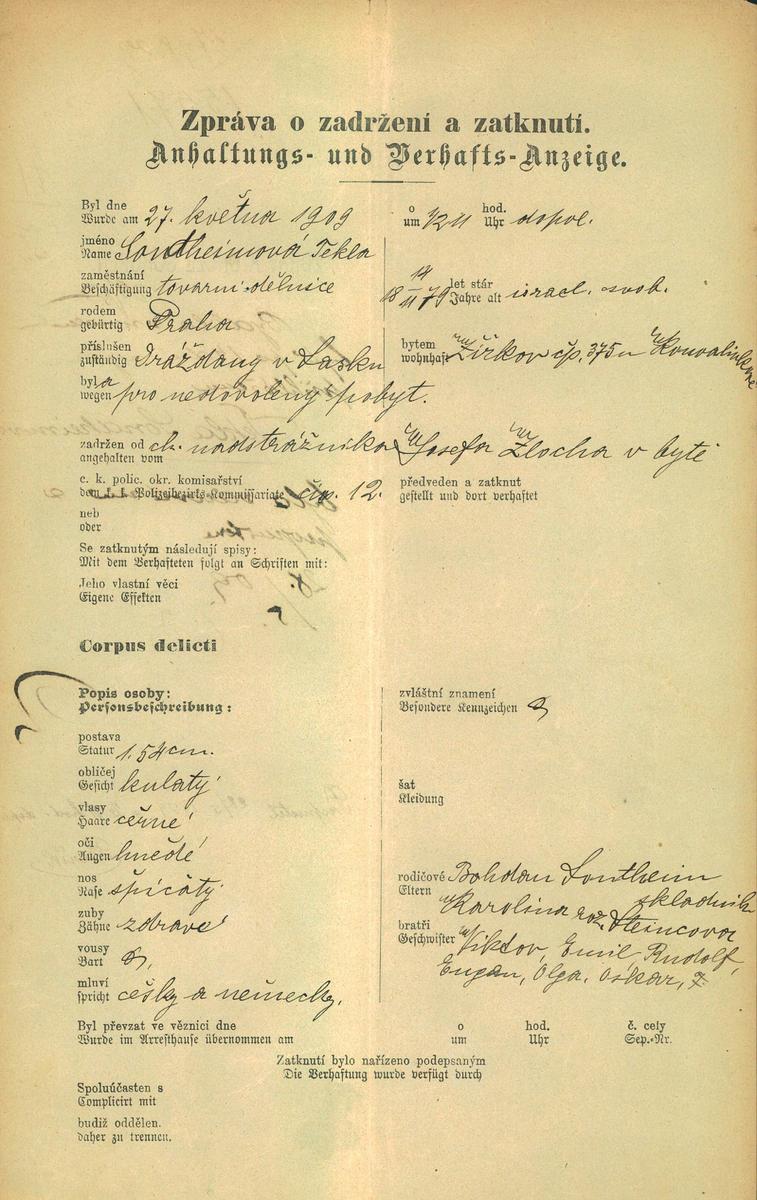 Zpráva o zadržení a zatknutí.
Anhaltungs- und Verhafts-Anzeige.
Byl dne
Wurde am 27. května 1909
o
um 1/2 11 hod.
Uhr dopol.
jméno
Name Sontheimová Tekla
zaměstnání
Beschäftigung tovarní dělnice
14
18 11 79 let stár
Jahre alt israel. svob.
rodem
gebürtig Praha
příslušen
zuständig Dráždany v Sasku
bytem
wohnhaft Žižkov čp. 375
byla
wegen pro nedovolený pobyt.
zadržen od
angehalten vom ck. nadstrážníka Josefa Zlocha v bytě
c. k. polic. okr. komisařství
dem k. k. Polizeibezirks-Kommissariate čís. 12.
předveden a zatknut
gestellt und dort verhaftet
neb
oder
Se zatknutým následují spisy:
Mit dem Verhafteten folgt an Schriften mit:
Jeho vlastní věci
Eigene Effekten
Corpus delicti
Popis osoby:
Personsbeschreibung:
zvláštní znamení
Besondere Kennzeichen
postava
Statur 1.54 cm.
obličej
Gesicht kulatý
šat
Kleidung
vlasy
Haare černé
oči
Augen hnědé
nos
Nase špičatý
rodičové
Eltern Bohdan Sontheim
skladník
Karolina roz. Steincova
zuby
Zähne zdravé
bratři
Geschwister Viktor, Emil, Rudolf,
Eugen, Olga, Oskar,
vousy
Bart
mluví
spricht česky a německy.
Byl převzat ve věznici dne
Wurde im Arresthause übernommen am
o
um
hod.
Uhr
č. cely
Sep.-Nr.
Zatknutí bylo nařízeno podepsaným
Die Verhaftung wurde verfügt durch
Spoluúčasten s
Complicirt mit
budiž oddělen.
daher zu trennen.